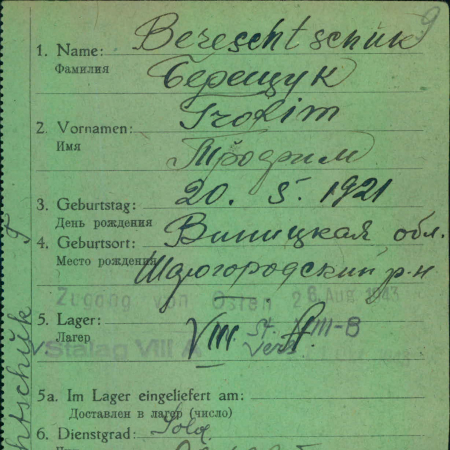 9
1. Name: Bereschtschük
Фамилия Берещук
2. Vornamen: Trofim
Имя Трофим
3. Geburtstag: 20. 5. 1921
День рождения
4. Geburtsort: Виницкая обл.
Место рождения Шаргородский р-н
Zugang von Osten 26. Aug. 1943
5. Lager: VIII. St. VIII-B
Лагер Stalag VIII A Vers.
5a. Im Lager eingeliefert am:
Доставлен в лагер (число)
6. Dienstgrad: Sold.